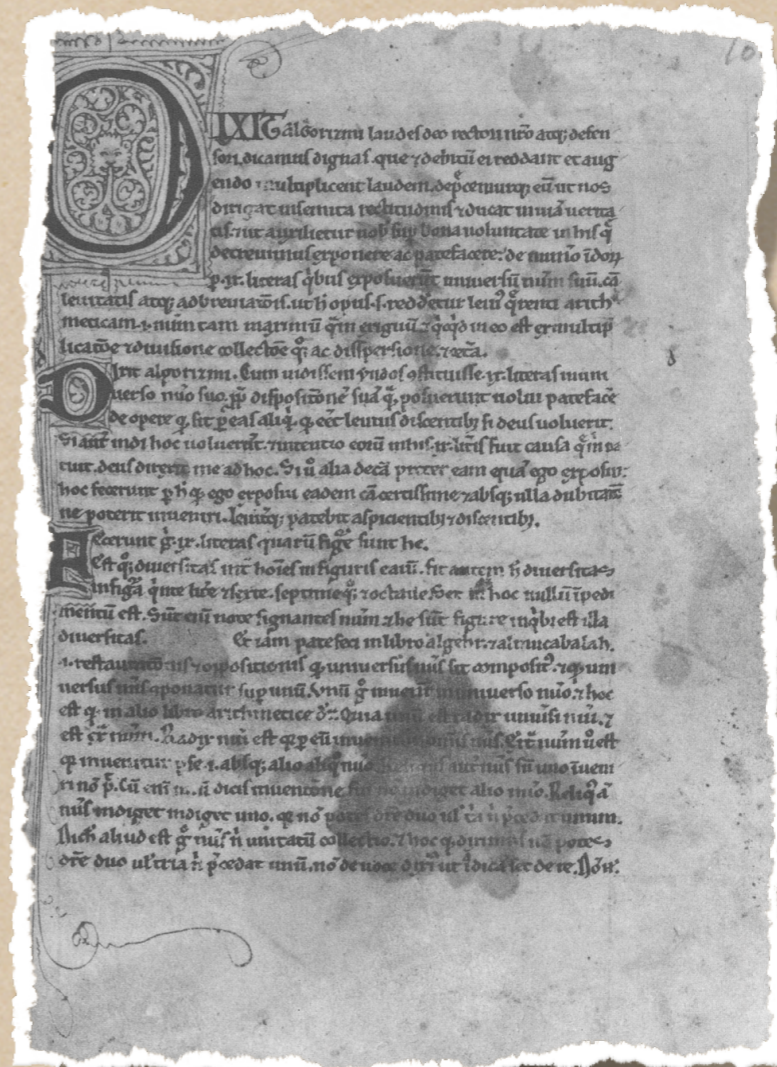 10.
DIXIT algorizmi laudes deo rectori nr̄o atq; defen
sori dicamus dignas. que ⁊ debitū ei reddant et aug
endo multiplicent laudem. dep̄cemurq; eū ut nos
dirigat in semita rectitudinis ⁊ ducat in uiā uerita
tis. ⁊ ut auxilietur nob̄ sup bona uoluntate in his q̄
decreuimus exponere ac patefacere: de num̄o īdoꝝ
p .ix. literas q̄bus exposuer̄t uniuersū num̄ suū. cā
leuitatis atq; adbreuiatōis. ut h̄ opus .s. redderetur leui᾽ q̄renti arith
meticam .i. num̄ tam maximū q̄m exiguū. ⁊ q̄cq̄d in eo est ex multipl̄
licatōe ⁊ diuisione collectōe q̄; ac dispersione. ⁊ cet̄a.
Dixit algorizmi. Cum uidissem yndos ꝯstituisse .ix. literas in uni
uerso num̄o suo. pp̄ dispositōnē suā q̄. posuerunt uolui patefac̄e
de opere q̄ fit p eas aliq̄. q̄ eēt leuius discentib; si deus uoluerit.
Si aut̄ indi hoc uoluer̄t. ⁊ intentio eorū in his .ix. lit̄is fuit causa q̄ m̄ pa
tuit. deus direxit me ad hoc. Si ū alia decā preter eam quā ego exposui:
hoc fecerunt p h̄ q̄ ego exposui eadem cā certissime ⁊ absq; ulla dubitatō
ne poterit inueniri. leuit̄q; patebit aspicientib; ⁊ discentib;.
Fecerunt ḡ .ix. literas quarū figr̄e sunt he.
Est q; diuersitas int̄ hoīes in figuris earū. fit autem h̄ diuersitas
in figā q̄nte lit̄e ⁊ sexte. septimeq; ⁊ octaue. Set in hoc nullū īpedi
mentū est. Sūt enī note signantes num̄ ⁊ he sūt figure in q̄b; est illa
diuersitas. Et iām patefeci in libro algebr. ⁊ almucabalah.
.i. restauratōis ⁊ oppositionis q̄ uniuersus nūs sit composit᾽. ⁊ q̄ uni
uersus nūs ꝯponatur sup unū. Vnū ḡ inuenit᾽ in uniuerso num̄o. ⁊ hoc
est q̄ in alio libro arithmetice dr̄. Quia unū est radix uniusi nūi. ⁊
est ext̄ num̄. Radix nūi est q̄ p eū inuenit᾽ omīs nūs. Ext̄ num̄ ū est
q̄ inuenitur p se .i. absq; alio aliq̄ nuo. Reliqus aut̄ nūs sn̄ uno īueni
ri nō p̄. Cū enī dicis unū inuentōne sui nō indiget alio num̄o. Reliq᾽ ā
nūs indiget indiget uno. q̄ nō potes dr̄e duo ul᾽ t̄a n̄ p̄cedat unum.
Nich̄ aliud est ḡ nūs n̄ unitatū collectio. ⁊ hoc q̄ diximus nō potes
dr̄e duo ul᾽ tria n̄ p̄cedat unū. nō de uoce dixim᾽ ut īdica set de re. Nō n̄.